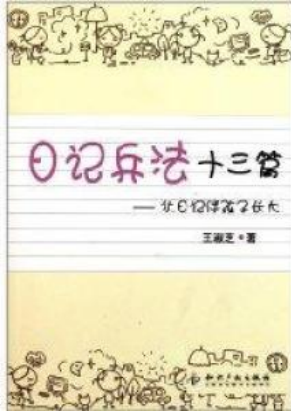 日记兵法十三篇
——让日记伴孩子长大
王淑芝·著
知识产权出版社